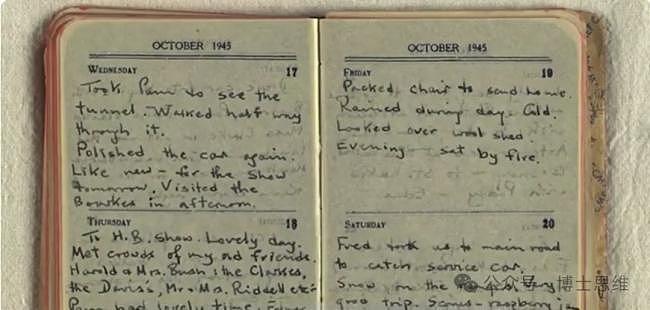 OCTOBER 1945
WEDNESDAY 17
Took Pam to see the
tunnel. Walked half way
through it.
Polished the car again.
Like new - for the Show
tomorrow. Visited the
Bowkes in afternoon.
THURSDAY 18
To H.B. Show. Lovely day.
Met crowds of my old friends.
Harold & Mrs. Bush: the Clarkes,
the Davis's, Mr. & Mrs. Riddell etc:
had lovely time.
OCTOBER 1945
FRIDAY 19
Packed chair to send home.
Rained during day. Cold.
Looked over wool shed.
Evening - sat by fire.
SATURDAY 20
Fred took us to main road
to catch service car.
Snow on the
good trip. Scones - raspberry jam
公众号 · 博士思维